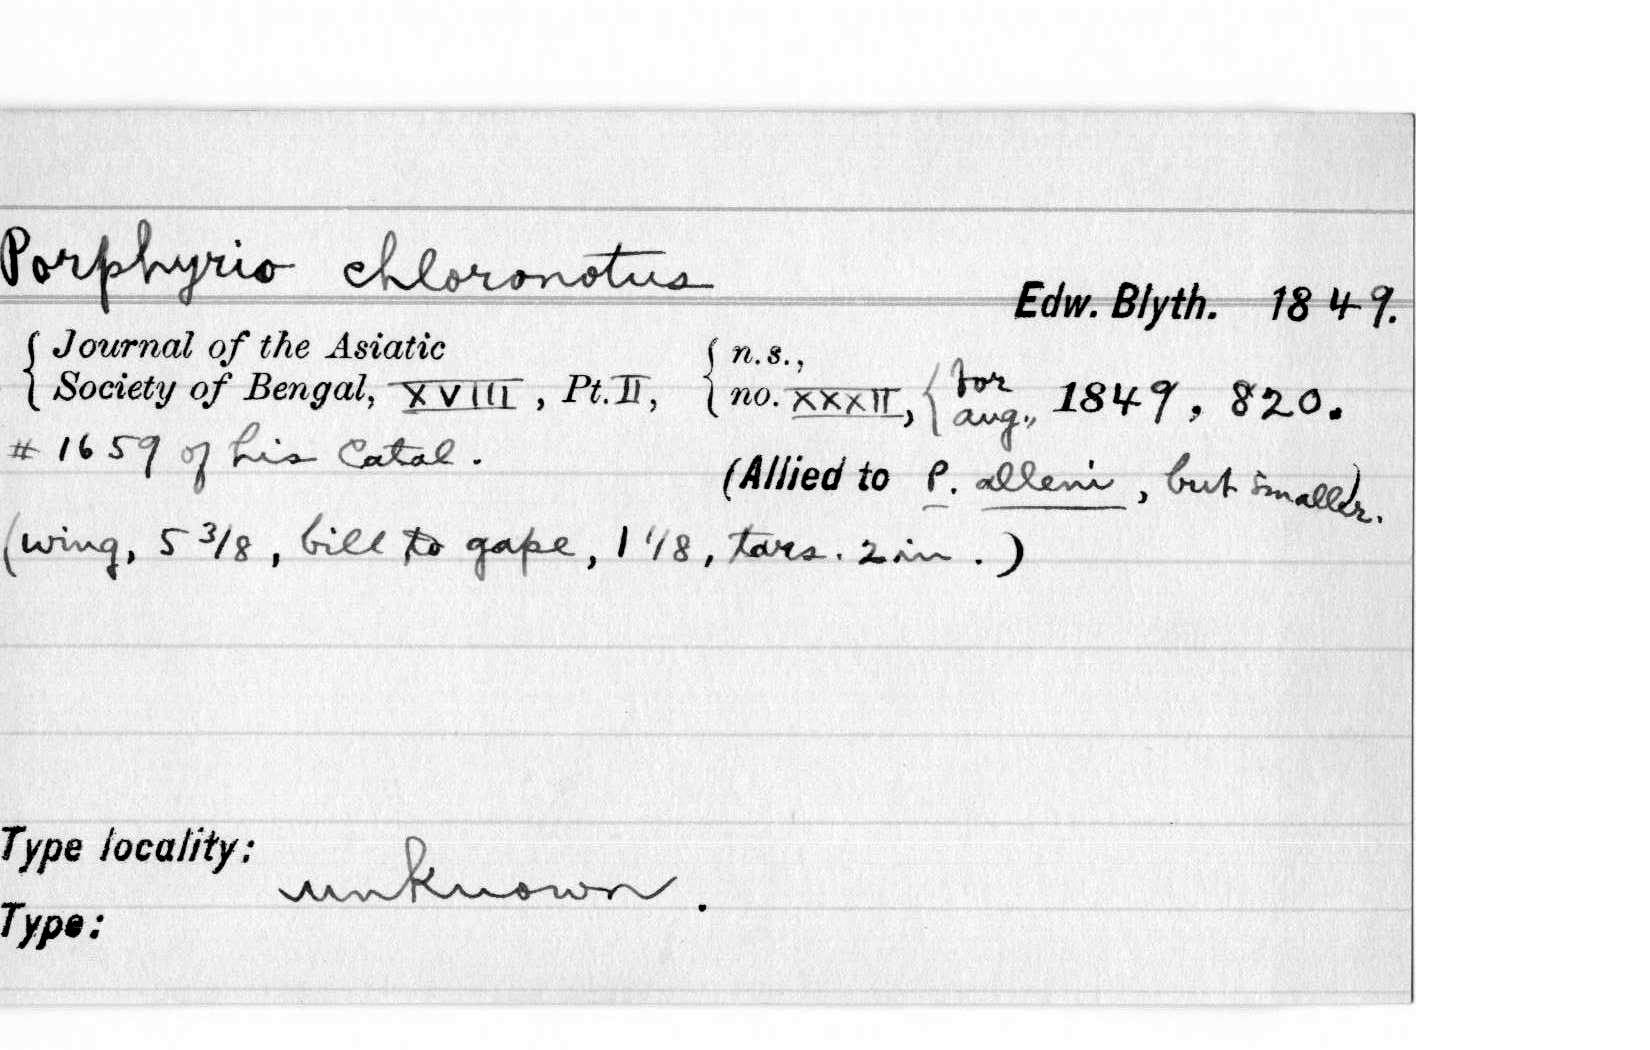 Porphyrio chloronotus
Edw. Blyth. 1849.
{ Journal of the Asiatic { n.s., { for
Society of Bengal, XVIII, Pt. II, no. XXXII, aug., 1849, 820.
# 1659 of his Catal.
(Allied to P. alleni, but smaller).
(wing, 5 3/8, bill to gape, 1 1/8, tars. 2 in.)
Type locality:
unknown.
Type: